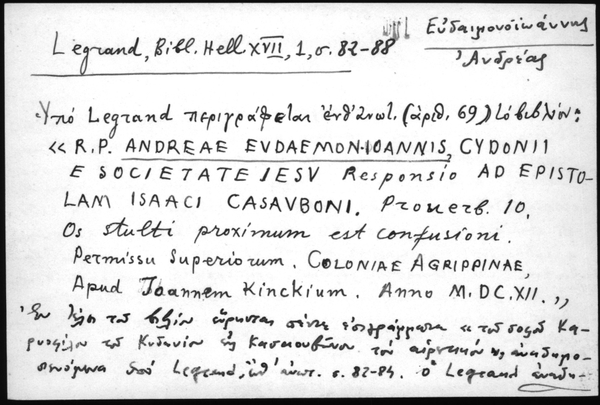 Legrand, Bibl. Hell. XVII, 1, σ. 82-88
Εὐδαιμονοϊωάννης
Ἀνδρέας
Ὑπό Legrand περιγράφεται ἐνθ' ἀνωτ. (ἀριθ. 69) τό βιβλίον:
« R.P. ANDREAE EVDAEMON-IOANNIS, CYDONII
E SOCIETATE IESV Responsio AD EPISTO-
LAM ISAACI CASAVBONI. Proverb. 10.
Os stulti proximum est confusioni.
Permissu Superiorum. COLONIAE AGRIPPINAE,
Apud Ioannem Kinckium. Anno M.DC.XII. „
Ἐν τέλει τοῦ βιβλίου εὕρηνται πέντε ἐπιγράμματα « τοῦ σοφοῦ Κα-
ρυοφίλου τοῦ Κυδωνίου εἰς Κασαουβῶνον τόν αἱρετικόν », ἀναδημο-
σιευόμενα ὑπό Legrand, ἐνθ' ἀνωτ. σ. 82-84. Ὁ Legrand ἀναδη-